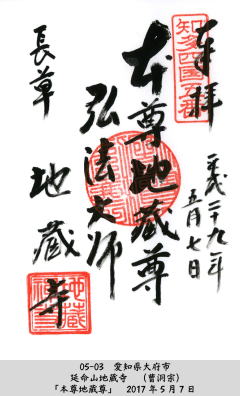 奉拝
知多四国五番
平成二十九年
五月七日
本尊地蔵尊
弘法大師
長草
地蔵寺
05-03 愛知県大府市
延命山地蔵寺 (曹洞宗)
「本尊地蔵尊」 2017年5月7日